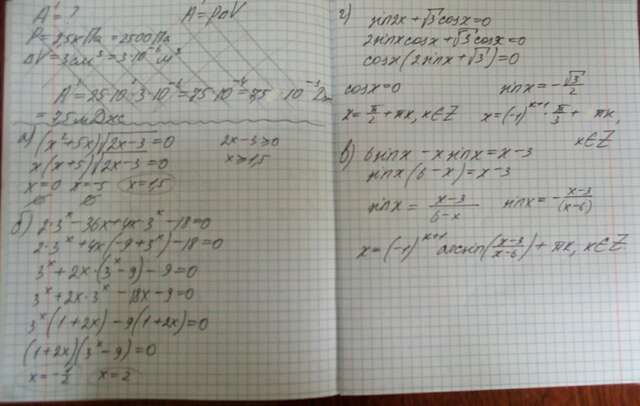 A' = ?          A' = pΔV
P = 2,5кПа = 2500 Па
ΔV = 3см³ = 3·10⁻⁶ м³
A' = 25·10²·3·10⁻⁶ = 75·10⁻⁴ = 7,5·10⁻³ Дж
= 7,5 мДж
а) (x²+5x)√(2x-3) = 0          2x-3≥0
x(x+5)√(2x-3) = 0          x≥1,5
x=0   x=-5   x=1,5
б) 2·3ˣ - 36x + 4x·3ˣ - 18 = 0
2·3ˣ + 4x(-9+3ˣ) - 18 = 0
3ˣ + 2x·(3ˣ-9) - 9 = 0
3ˣ + 2x·3ˣ - 18x - 9 = 0
3ˣ(1+2x) - 9(1+2x) = 0
(1+2x)(3ˣ-9) = 0
x = -1/2   x = 2
г) sin2x + √3 cosx = 0
2sinxcosx + √3 cosx = 0
cosx(2sinx + √3) = 0
cosx = 0          sinx = -√3/2
x = π/2 + πk, k∈Z   x = (-1)ᵏ⁺¹·π/3 + πk,
k∈Z
в) 6sinx - xsinx = x-3
sinx(6-x) = x-3
sinx = (x-3)/(6-x)   sinx = -(x-3)/(x-6)
x = (-1)ᵏ⁺¹ arcsin((x-3)/(x-6)) + πk, k∈Z